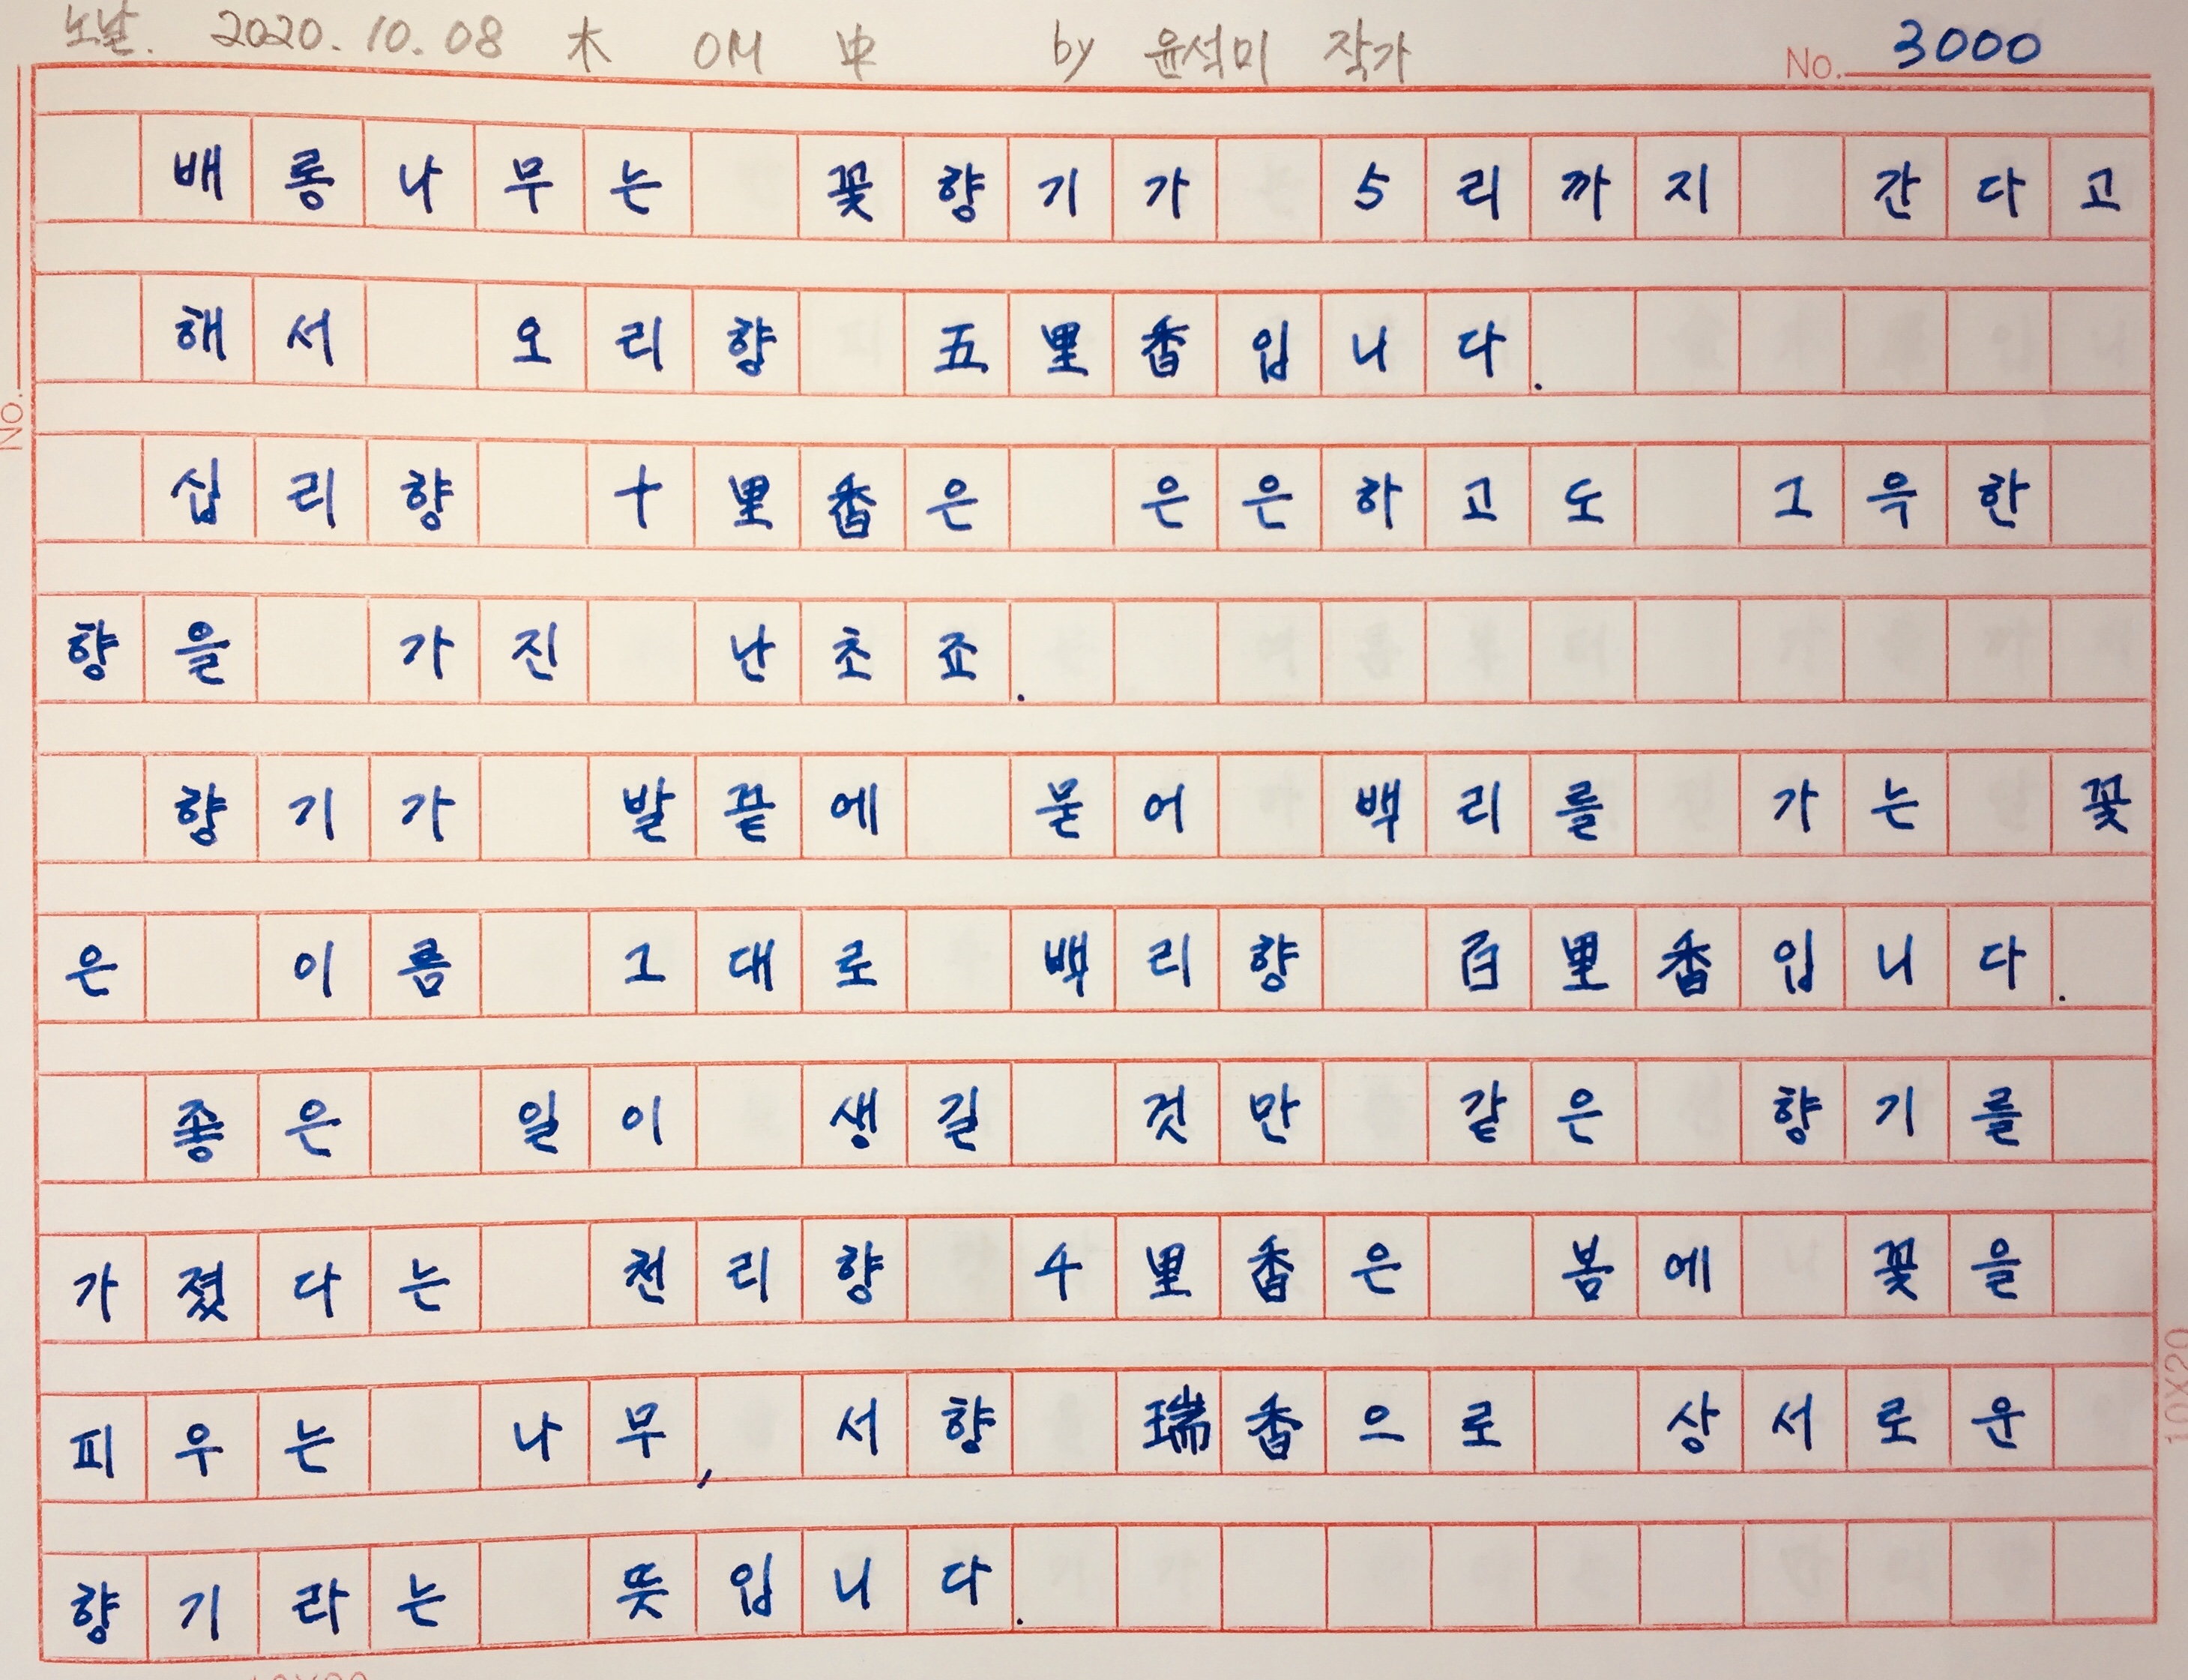 노날. 2020.10.08 木 OM 中 by 윤석미 작가
No. 3000
배롱나무는 꽃향기가 5리까지 간다고
해서 오리향 五里香입니다.
No.
십리향 十里香은 은은하고도 그윽한
향을 가진 난초죠.
향기가 발끝에 묻어 백리를 가는 꽃
은 이름 그대로 백리향 百里香입니다.
좋은 일이 생길 것만 같은 향기를
가졌다는 천리향 千里香은 봄에 꽃을
피우는 나무, 서향 瑞香으로 상서로운
향기라는 뜻입니다.
10X20